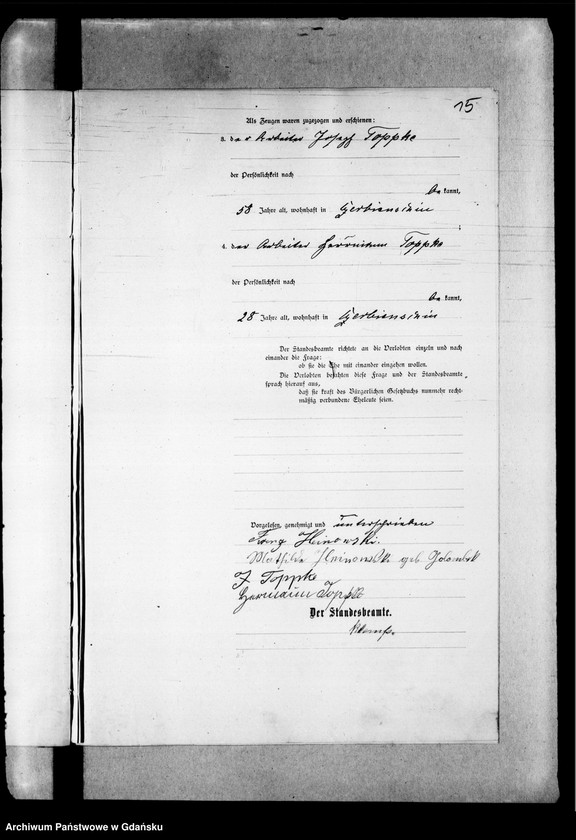 15
Als Zeugen waren zugezogen und erschienen:
3. der Arbeiter Josef Toppke
der Persönlichkeit nach
be kannt,
58 Jahre alt, wohnhaft in
4. der Arbeiter Hermann Toppke
der Persönlichkeit nach
be kannt,
28 Jahre alt, wohnhaft in
Der Standesbeamte richtete an die Verlobten einzeln und nach
einander die Frage:
ob sie die Ehe mit einander eingehen wollen.
Die Verlobten bejahten diese Frage und der Standesbeamte
sprach hierauf aus,
daß sie kraft des Bürgerlichen Gesetzbuchs nunmehr recht-
mäßig verbundene Eheleute seien.
Vorgelesen, genehmigt und unterschrieben
Franz Heinowski.
Mathilde Heinowski geb
J Toppke
Hermann Toppke
Der Standesbeamte.
Archiwum Państwowe w Gdańsku